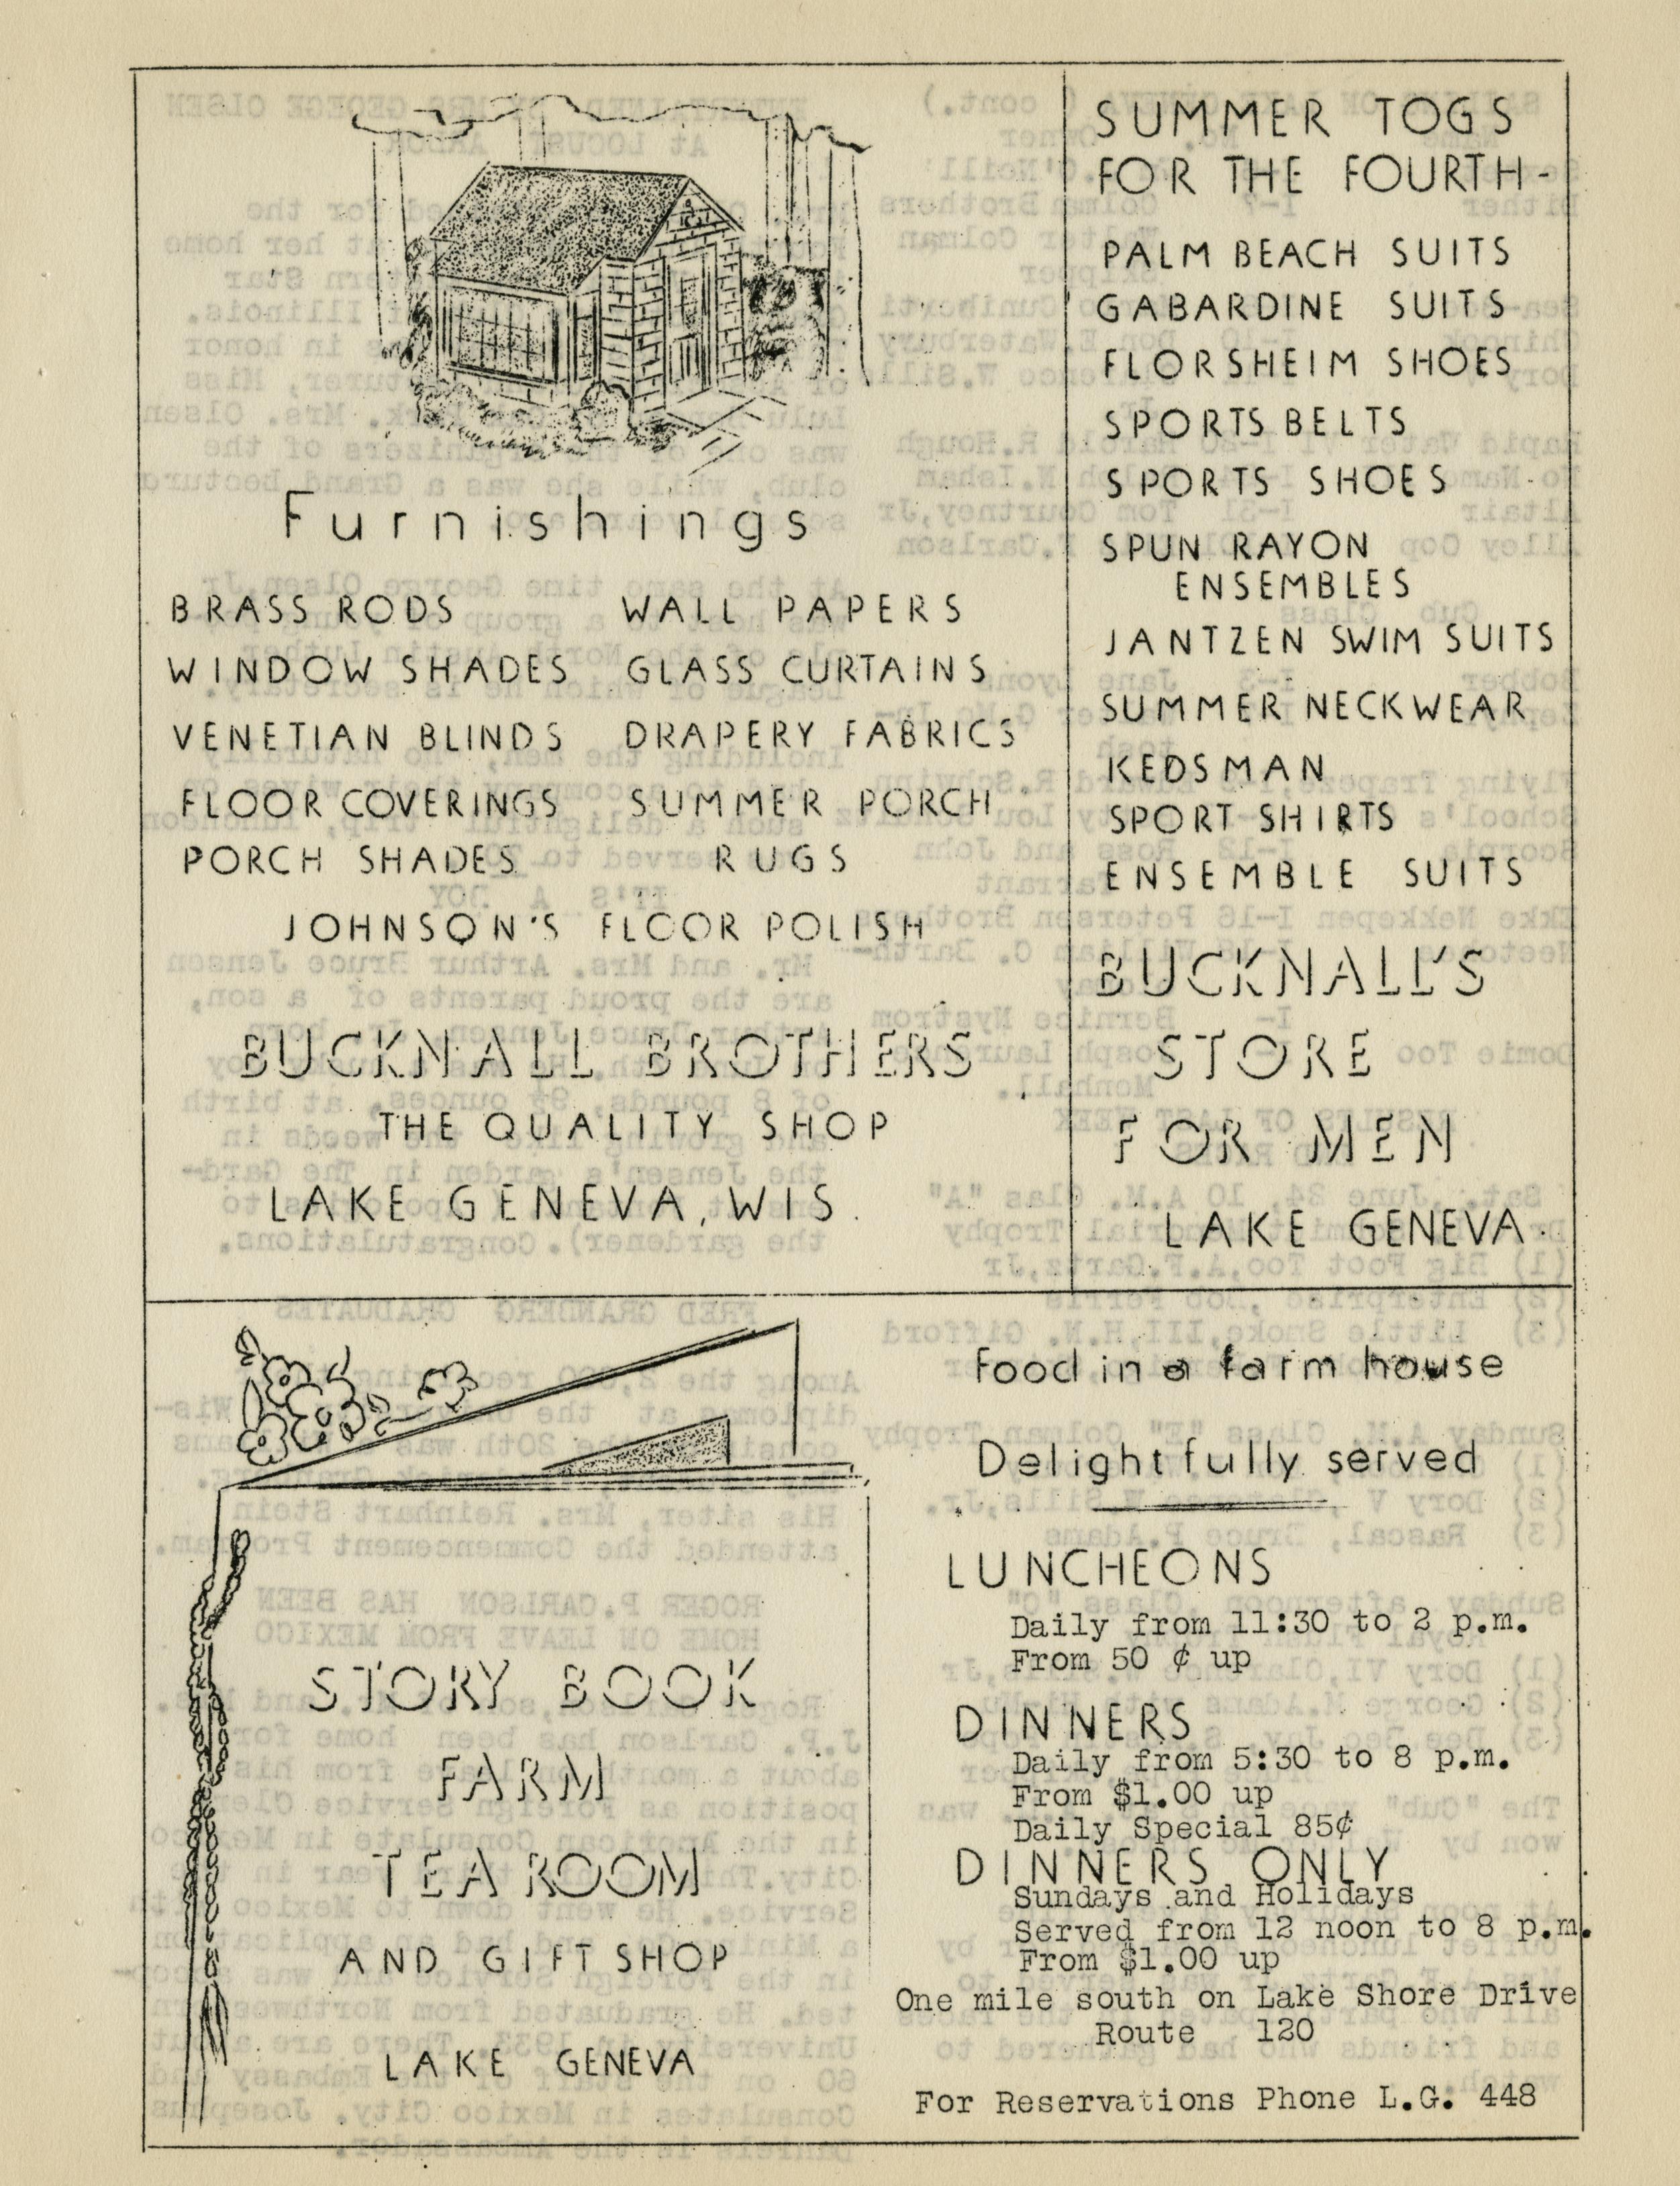 Furnishings
BRASS RODS WALL PAPERS
WINDOW SHADES GLASS CURTAINS
VENETIAN BLINDS DRAPERY FABRICS
FLOOR COVERINGS SUMMER PORCH
PORCH SHADES RUGS
JOHNSON'S FLOOR POLISH
BUCKNALL BROTHERS
THE QUALITY SHOP
LAKE GENEVA, WIS.
SUMMER TOGS
FOR THE FOURTH-
PALM BEACH SUITS
GABARDINE SUITS
FLORSHEIM SHOES
SPORTS BELTS
SPORTS SHOES
SPUN RAYON
ENSEMBLES
JANTZEN SWIM SUITS
SUMMER NECKWEAR
KEDSMAN
SPORT SHIRTS
ENSEMBLE SUITS
BUCKNALL'S
STORE
FOR MEN
LAKE GENEVA.
STORY BOOK
FARM
TEA ROOM
AND GIFT SHOP
LAKE GENEVA
Food in a farm house
Delightfully served
LUNCHEONS
Daily from 11:30 to 2 p.m.
From 50 ¢ up
DINNERS
Daily from 5:30 to 8 p.m.
From $1.00 up
Daily Special 85¢
DINNERS ONLY
Sundays and Holidays
Served from 12 noon to 8 p.m.
From $1.00 up
One mile south on Lake Shore Drive
Route 120
For Reservations Phone L.G. 448